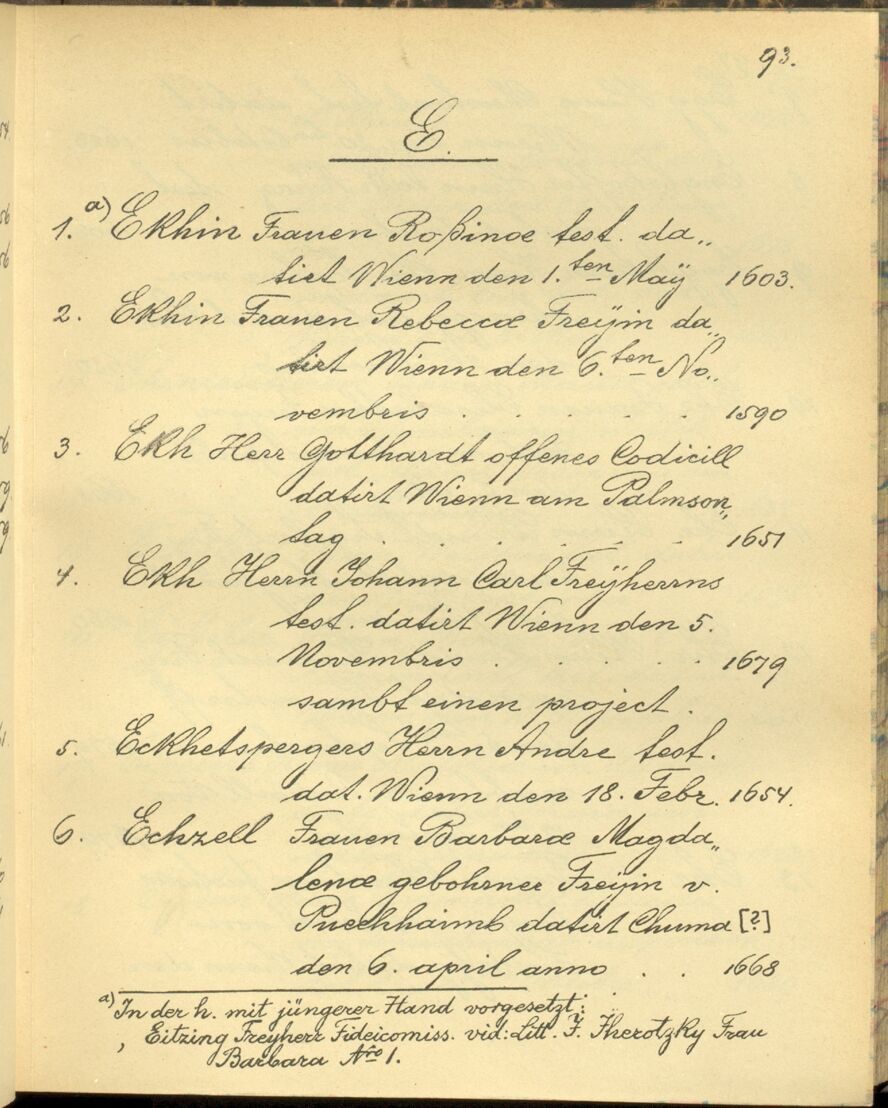 93.
E.
1. a) Ekhin Frauen Roßinæ test. da„
tirt Wienn den 1. ten Maÿ 1603.
2. Ekhin Frauen Rebeccæ Freÿin da„
tirt Wienn den 6. ten No„
vembris . . . . . . 1590
3. Ekh Herr Gotthardt offenes Codicill
datirt Wienn am Palmson„
tag . . . . . . . 1651
4. Ekh Herrn Johann Carl Freÿherrns
test. datirt Wienn den 5.
Novembris . . . . . 1679
sambt einen project .
5. Eckhetspergers Herrn Andre test.
dat. Wienn den 18. Febr. 1654.
6. Echzell Frauen Barbaræ Magda„
lenæ gebohrner Freÿin v.
Puechhaimb datirt Chuma [?]
den 6. april anno . . 1668
a) In der h. mit jüngerer Hand vorgesetzt:
Eitzing Freyherr Fideicomiss. vid: Litt. F. Fherotzky Frau
Barbara Nro 1.